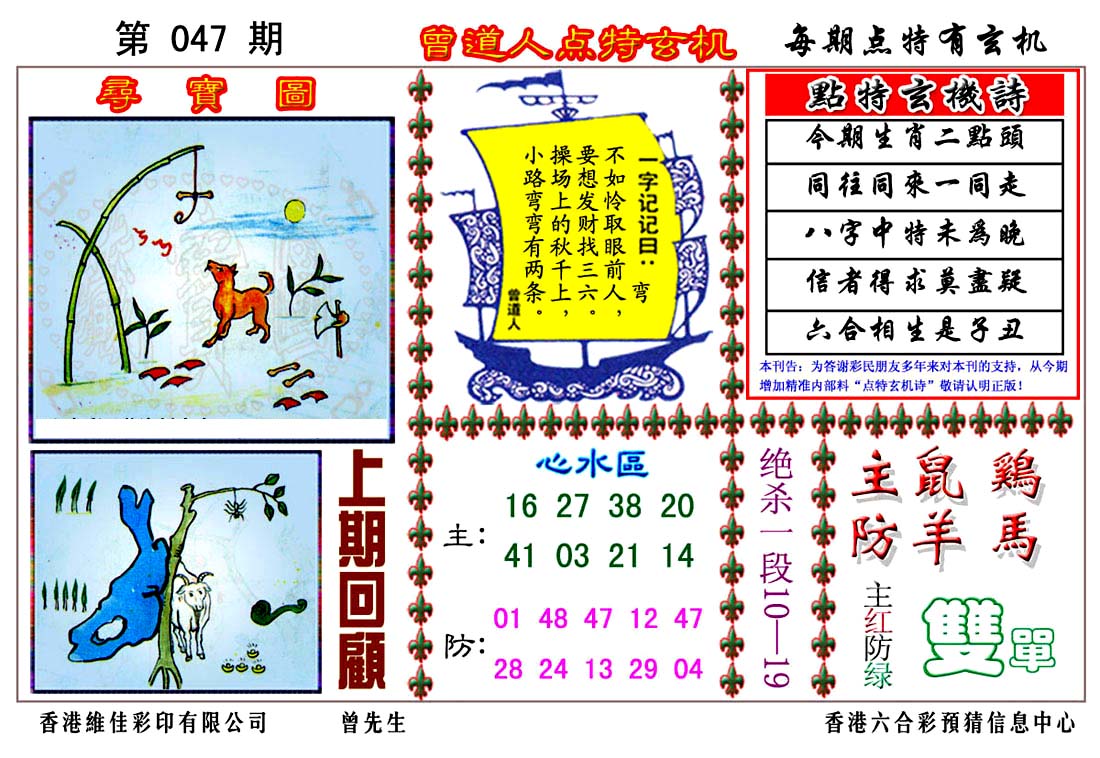 第 047 期
曾道人点特玄机
每期点特有玄机
尋寶圖
一字记记曰：弯
不如怜取眼前人，
要想发财找三六。
操场上的秋千上，
小路弯弯有两条。
曾道人
點特玄機詩
今期生肖二點頭
同往同來一同走
八字中特未為晚
信者得求莫盡疑
六合相生是子丑
本刊告：为答谢彩民朋友多年来对本刊的支持，从今期
增加精准内部料“点特玄机诗”敬请认明正版！
上期回顧
心水區
主：
16 27 38 20
41 03 21 14
防：
01 48 47 12 47
28 24 13 29 04
绝杀一段10—19
主鼠 鷄
防羊 馬
主红防绿
雙單
香港維佳彩印有限公司
曾先生
香港六合彩預猜信息中心